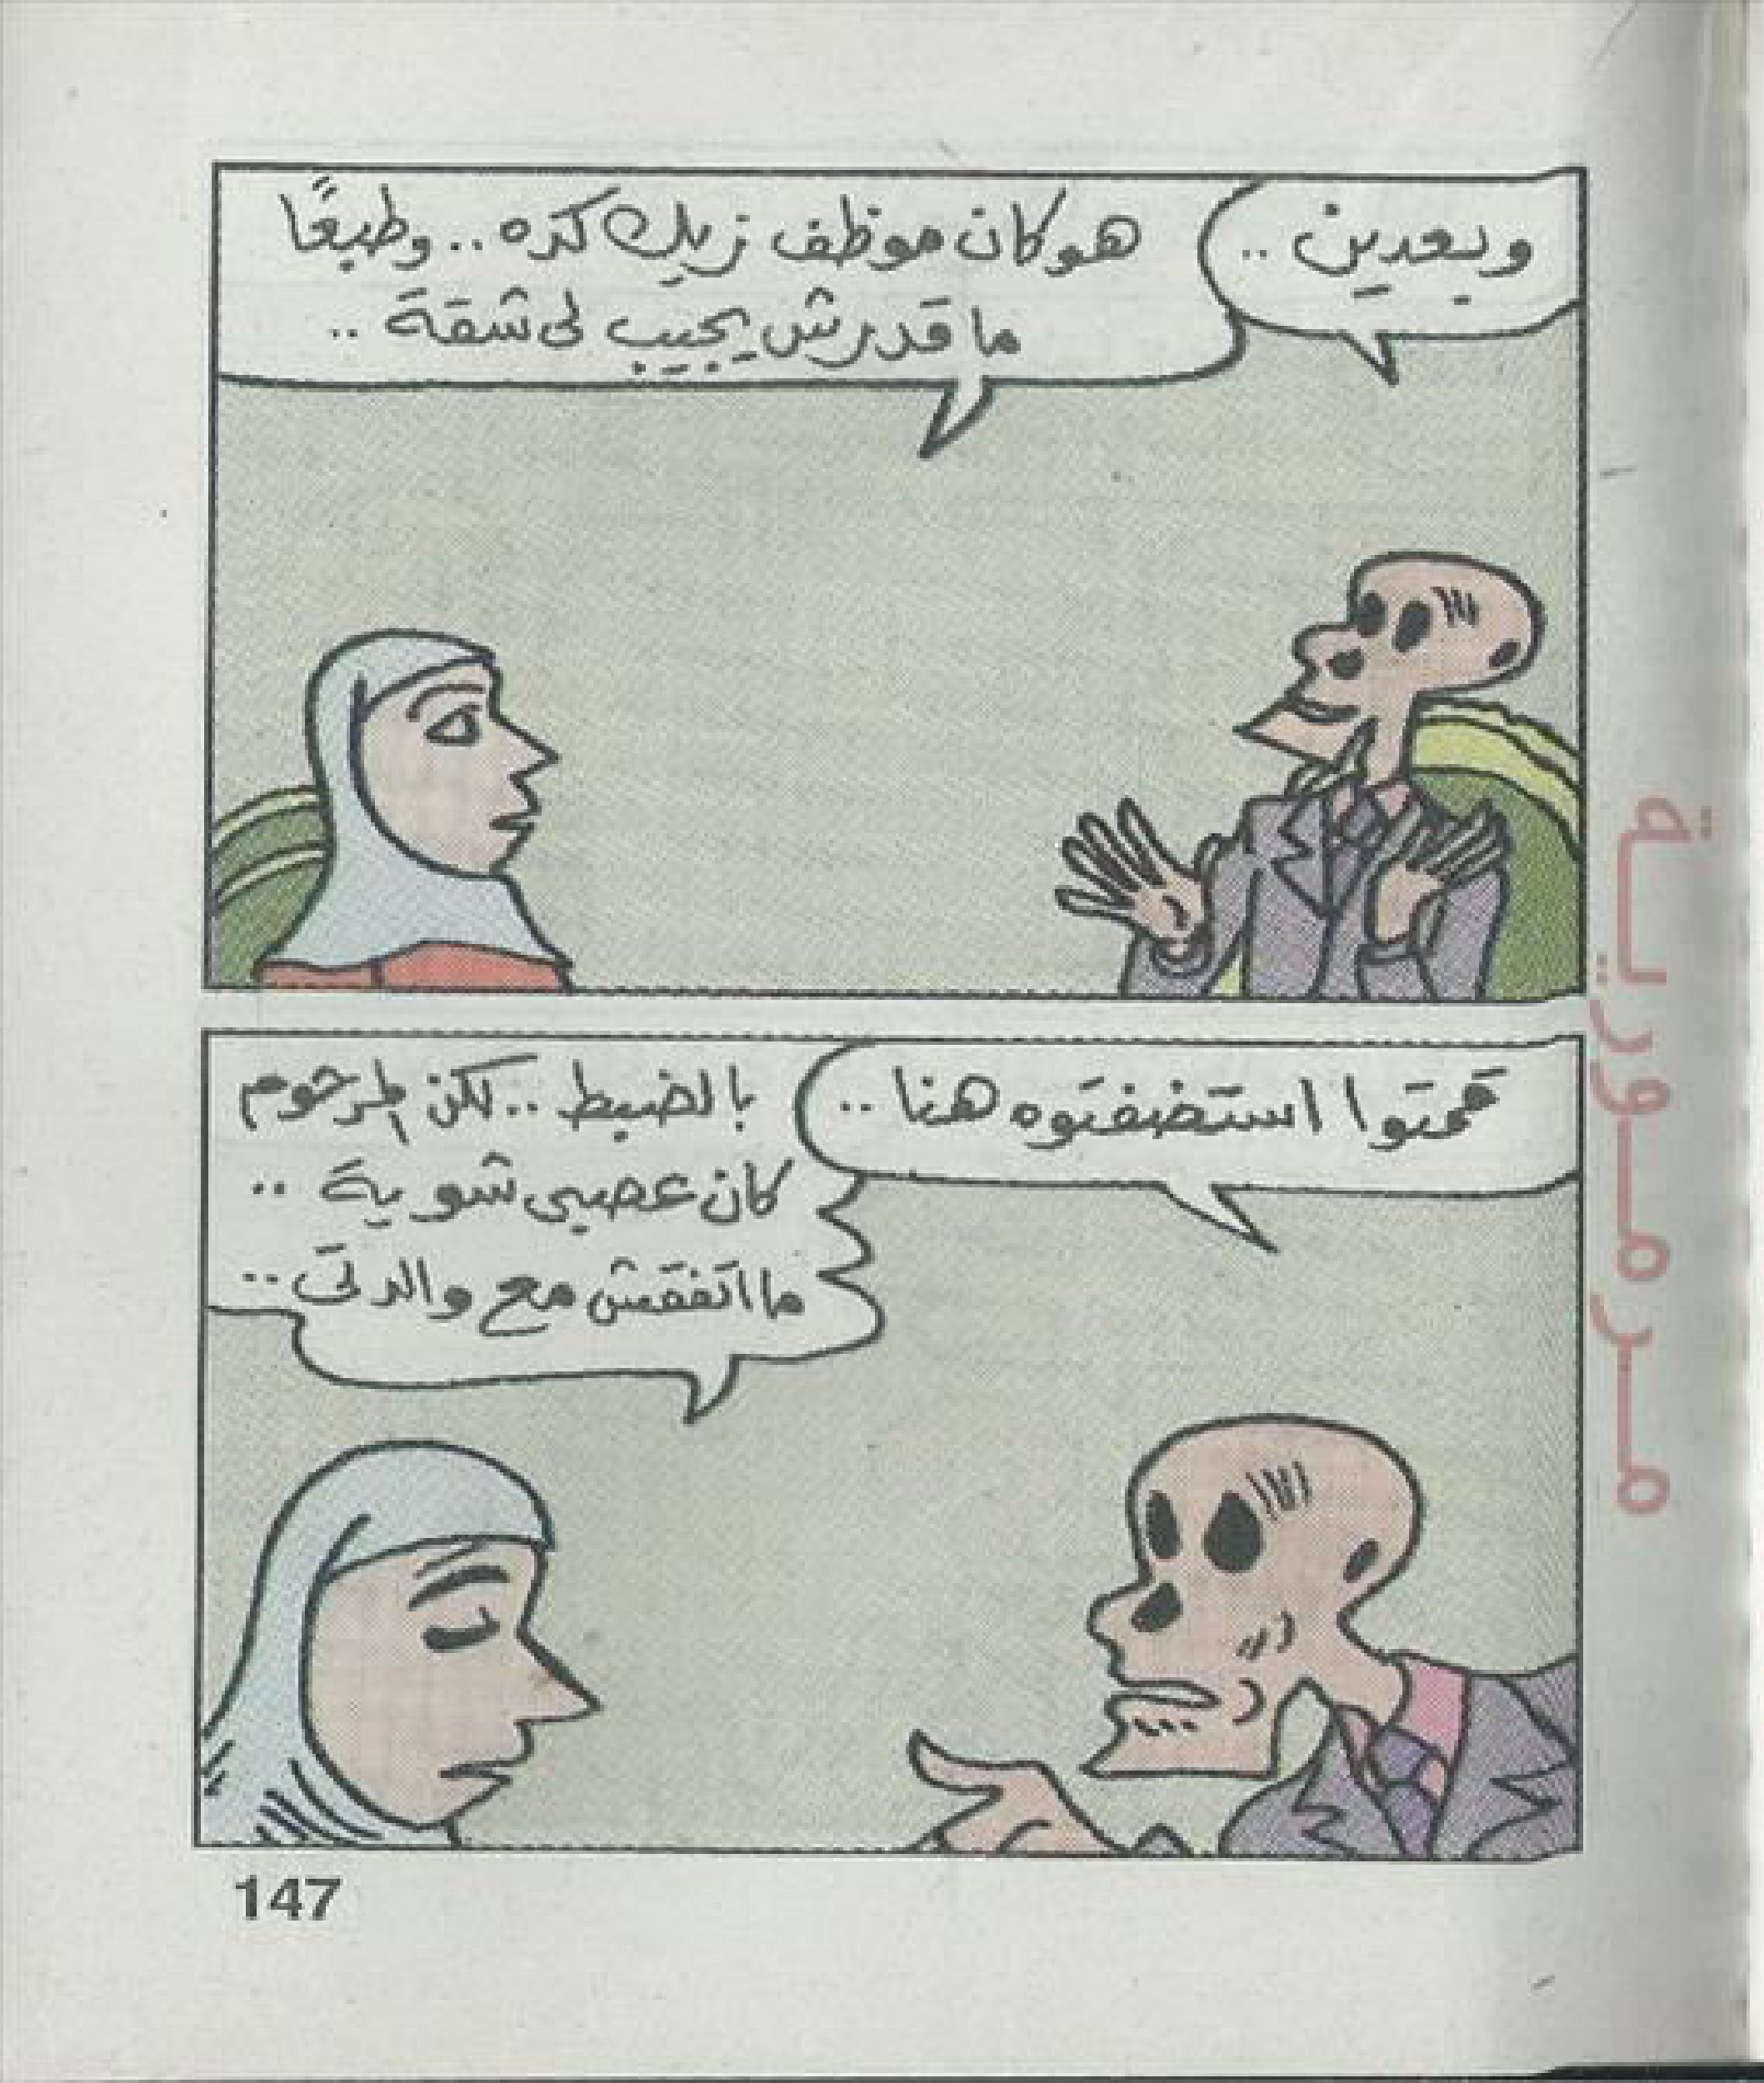 وبعدين ..
هو كان موظف زيك كده .. وطبعًا
ما قدرش يجيب لى شقة ..
قمتوا استضفتوه هنا ..
بالضبط .. لكن المرحوم
كان عصبى شوية ..
ما اتفقش مع والدتى ..
147
مرمورية